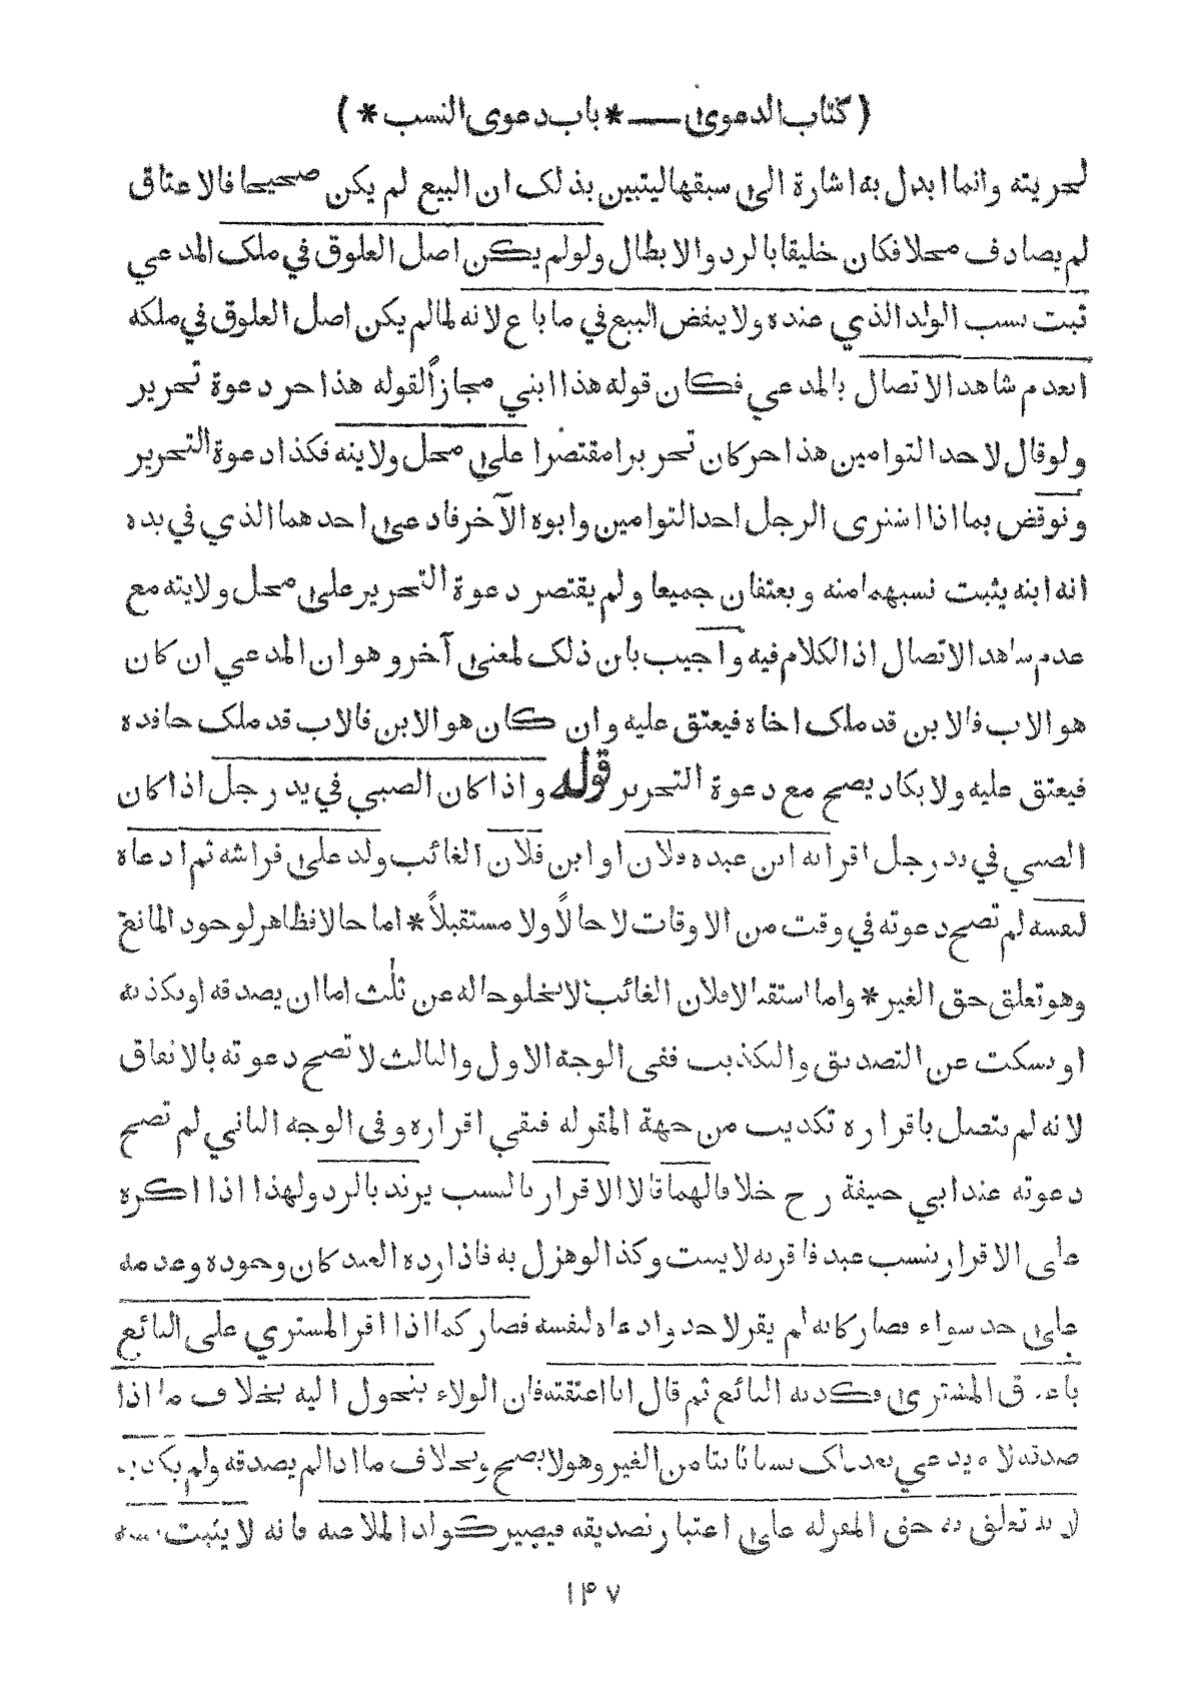 ( كتاب الدعوى — * باب دعوى النسب * )
لحريته وانما ابدل به اشارة الى سبقها ليتبين بذلك ان البيع لم يكن صحيحا فالاعتاق
لم يصادف محلا فكان خليقا بالرد والابطال ولولم يكن اصل العلوق في ملك المدعي
ثبت نسب الولد الذي عنده ولا ينقض البيع في ما باع لانه لما لم يكن اصل العلوق في ملكه
انعدم شاهد الاتصال بالمدعي فكان قوله هذا ابني مجازاً لقوله هذا حر دعوة تحرير
ولو قال لاحد التوامين هذا حر كان تحريرا مقتصرا على محل ولاينه فكذا دعوة التحرير
ونوقض بما اذا اشترى الرجل احد التوامين وابوه الآخر فادعى احدهما الذي في يده
انه ابنه يثبت نسبهما منه ويعتقان جميعا ولم يقتصر دعوة التحرير على محل ولايته مع
عدم شاهد الاتصال اذ الكلام فيه واجيب بان ذلك لمعنى آخر وهو ان المدعي ان كان
هو الاب فالابن قد ملك اخاه فيعتق عليه وان كان هو الابن فالاب قد ملك حافده
فيعتق عليه ولا يكاد يصح مع دعوة التحرير قوله واذا كان الصبي في يد رجل اذا كان
الصبي في يد رجل اقر انه ابن عبده فلان او ابن فلان الغائب ولد على فراشه ثم ادعاه
لنفسه لم تصح دعوته في وقت من الاوقات لا حالاً ولا مستقبلاً * اما حالا فظاهر لوجود المانع
وهو تعلق حق الغير * واما استقبالا فلان الغائب لا يخلو حاله عن ثلث اما ان يصدقه او يكذبه
او يسكت عن التصديق والتكذيب ففى الوجه الاول والثالث لا تصح دعوته بالاتفاق
لانه لم يتصل باقراره تكذيب من جهة المقرله فبقي اقراره وفى الوجه الثاني لم تصح
دعوته عند ابي حنيفة رح خلافا لهما قالا الاقرار بالنسب يرتد بالرد ولهذا اذا اكره
على الاقرار بنسب عبد فاقر به لا يثبت وكذا لو هزل به فاذا رده العبد كان وجوده وعدمه
على حد سواء فصار كانه لم يقر لاحد وادعاه لنفسه فصار كما اذا اقر المشتري على البائع
باعتاق المشترى فكذبه البائع ثم قال انا اعتقته فان الولاء يتحول اليه بخلاف ما اذا
صدقه لانه يدعي بعد ذلك نسبا ثابتا من الغير وهو لا يصح وبخلاف ما اذا لم يصدقه ولم يكذبه
لانه تعلق به حق المقرله على اعتبار تصديقه فيصير كولد الملاعنة فانه لا يثبت نسبه
۱۴۷